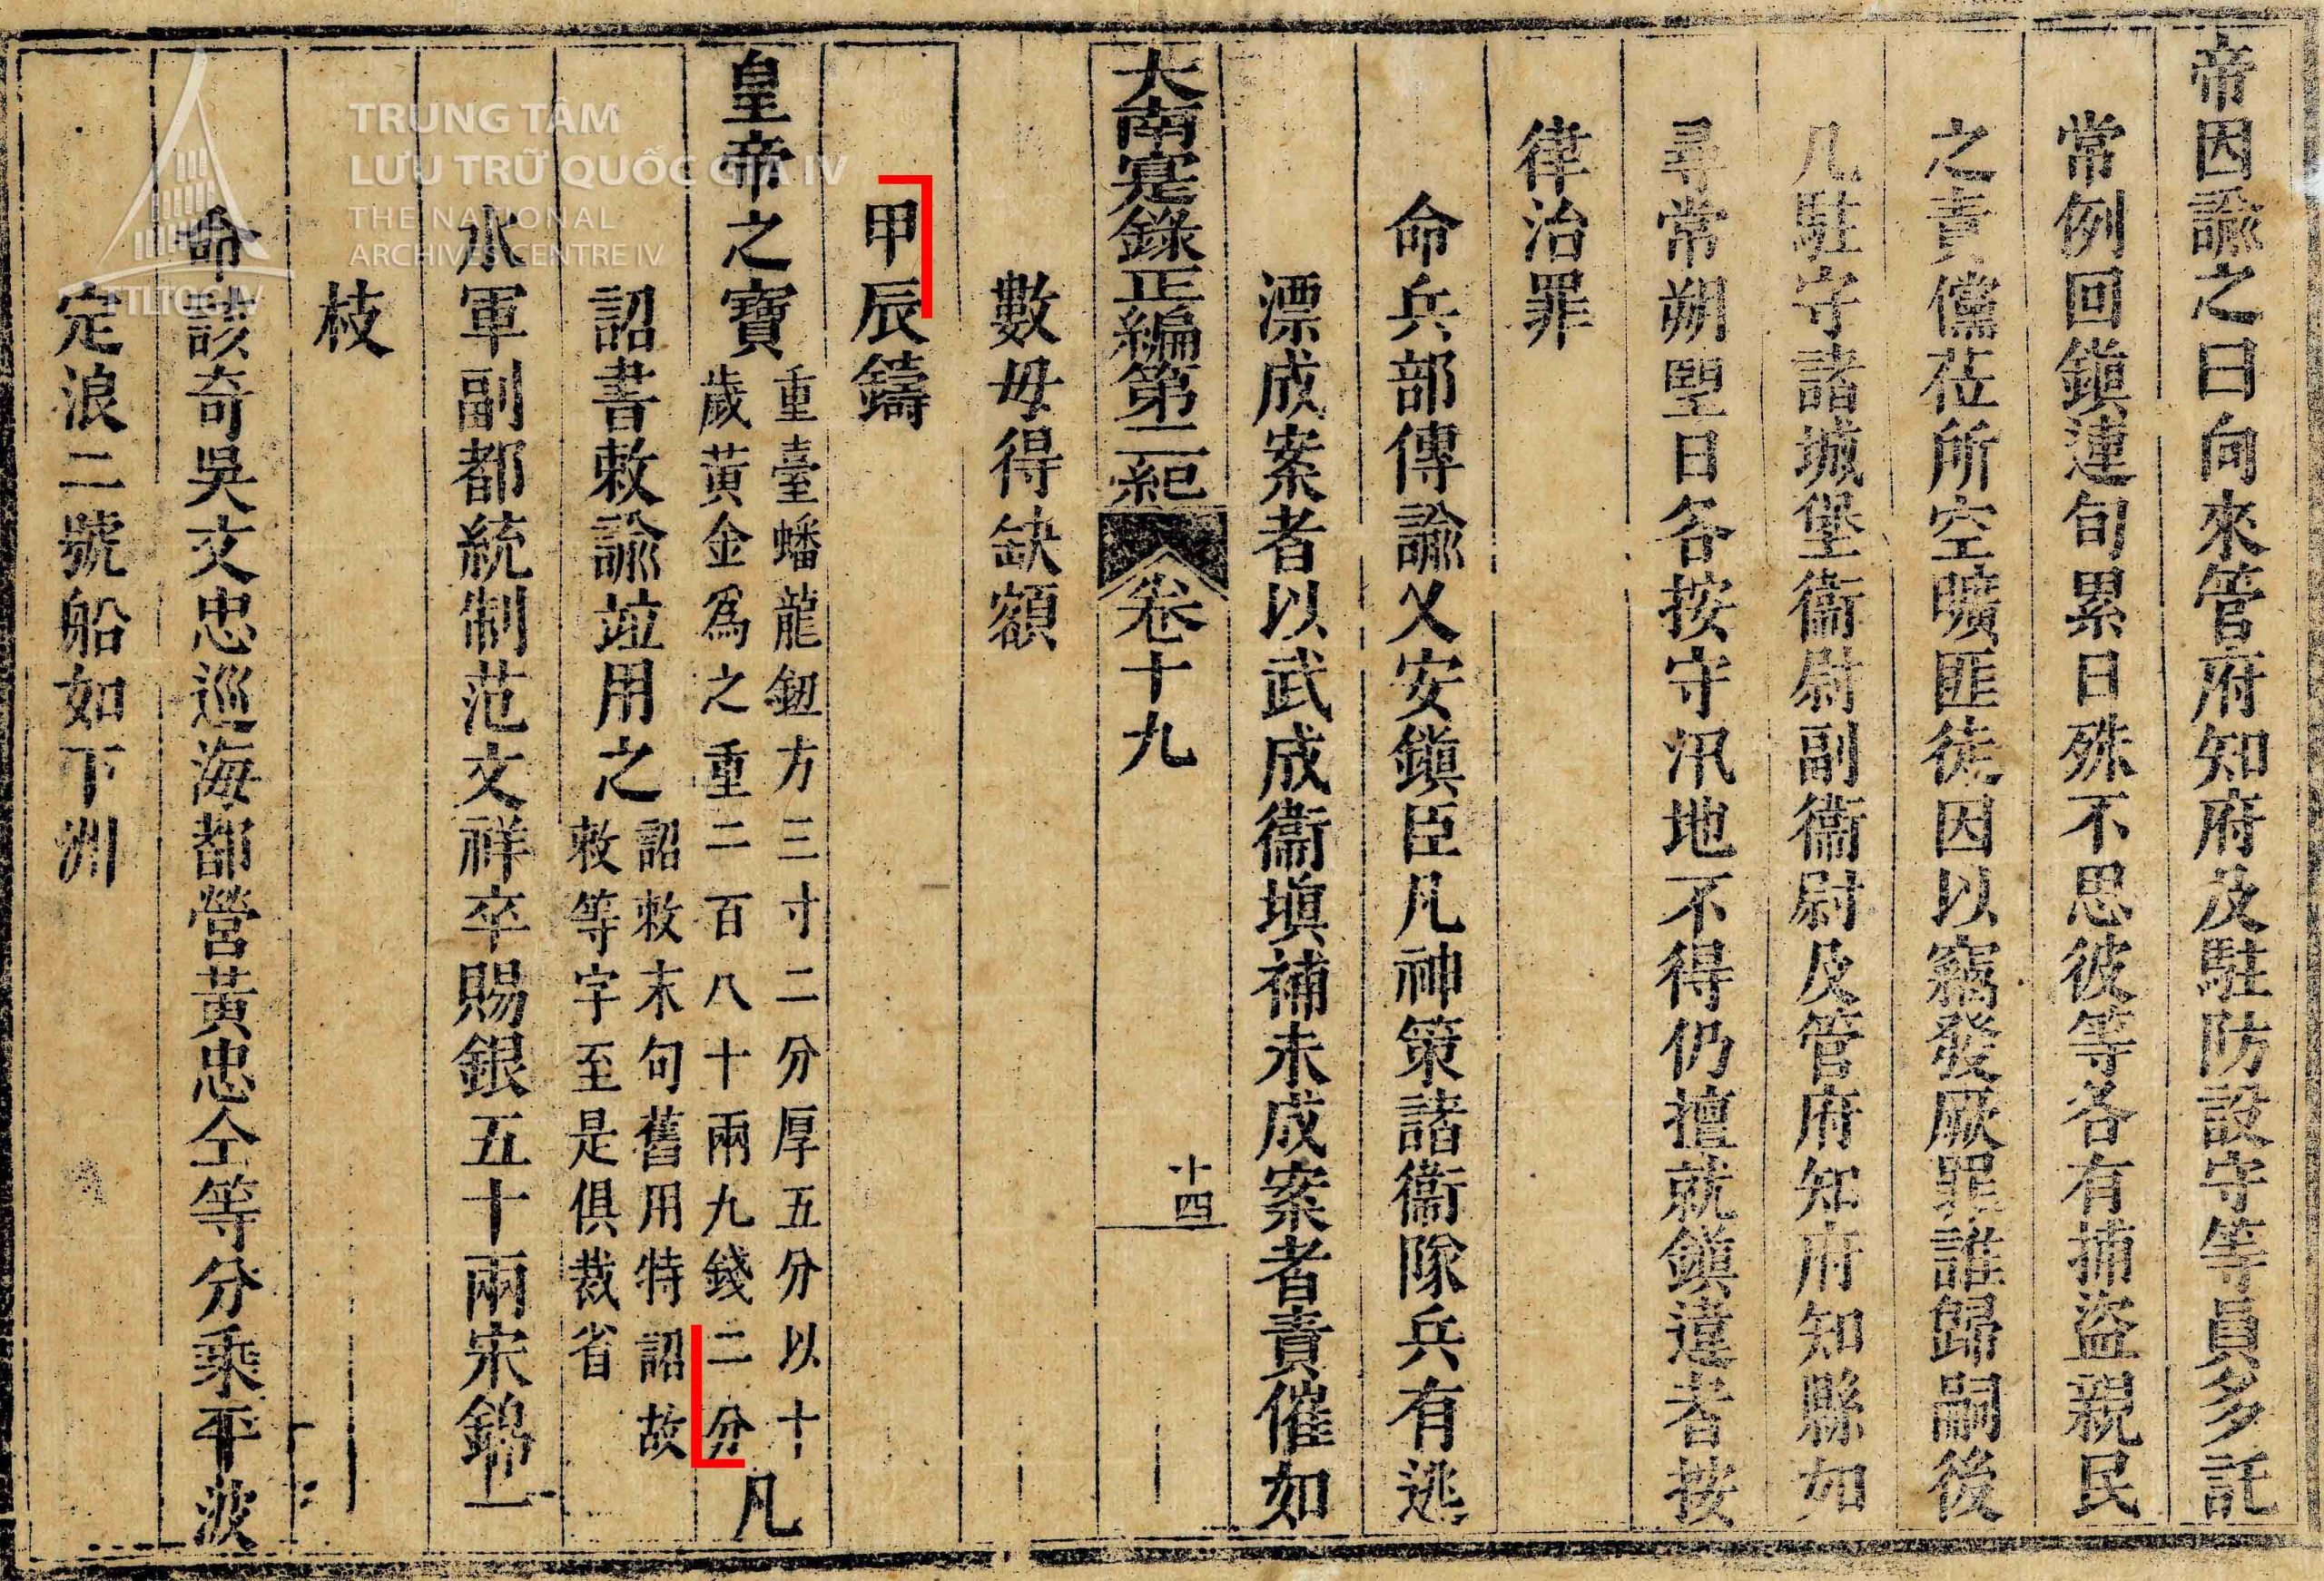 帝因諭之曰向來管府知府及駐防設守等員多託
常例回鎮連旬累日殊不思彼等各有捕盜親民
之責儻莅所空曠匪徒因以竊發厥罪誰歸嗣後
凡駐守諸城堡衞尉副衞尉及管府知府知縣如
尋常朔望日各按守汛地不得仍擅就鎮違者按
律治罪
命兵部傳諭乂安鎮臣凡神策諸衞隊兵有逃
漂成案者以武成衞塡補未成案者責催如
大南寔錄正編第二紀 卷十九 十四
數毋得缺額
甲辰鑄
皇帝之寶
重臺蟠龍鈕方三寸二分厚五分以十
歲黃金爲之重二百八十兩九錢二分
凡
詔書敕諭竝用之
詔敕末句舊用特詔故
敕等字至是俱裁省
水軍副都統制范文祥卒賜銀五十兩宋錦一
枝
命該奇吳文忠巡海都營黃忠仝等分乘平波
定浪二號船如下洲
TRUNG TÂM
LƯU TRỮ QUỐC GIA IV
THE NATIONAL
ARCHIVES CENTRE IV
TTLTQG IV